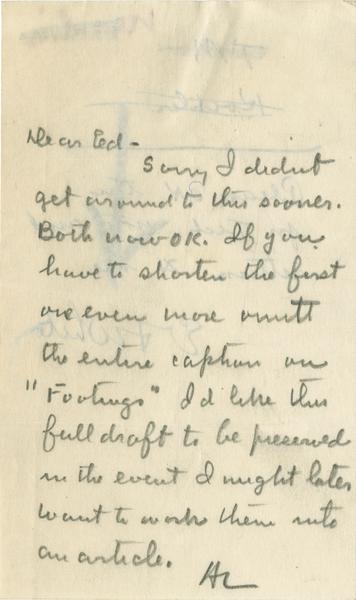 Dear Ed -
Sorry I didnt
get around to this sooner.
Both now OK. If you
have to shorten the first
one even more omitt
the entire caption on
"Footings" I'd like this
full draft to be preserved
in the event I might later
want to work them into
an article.
HL